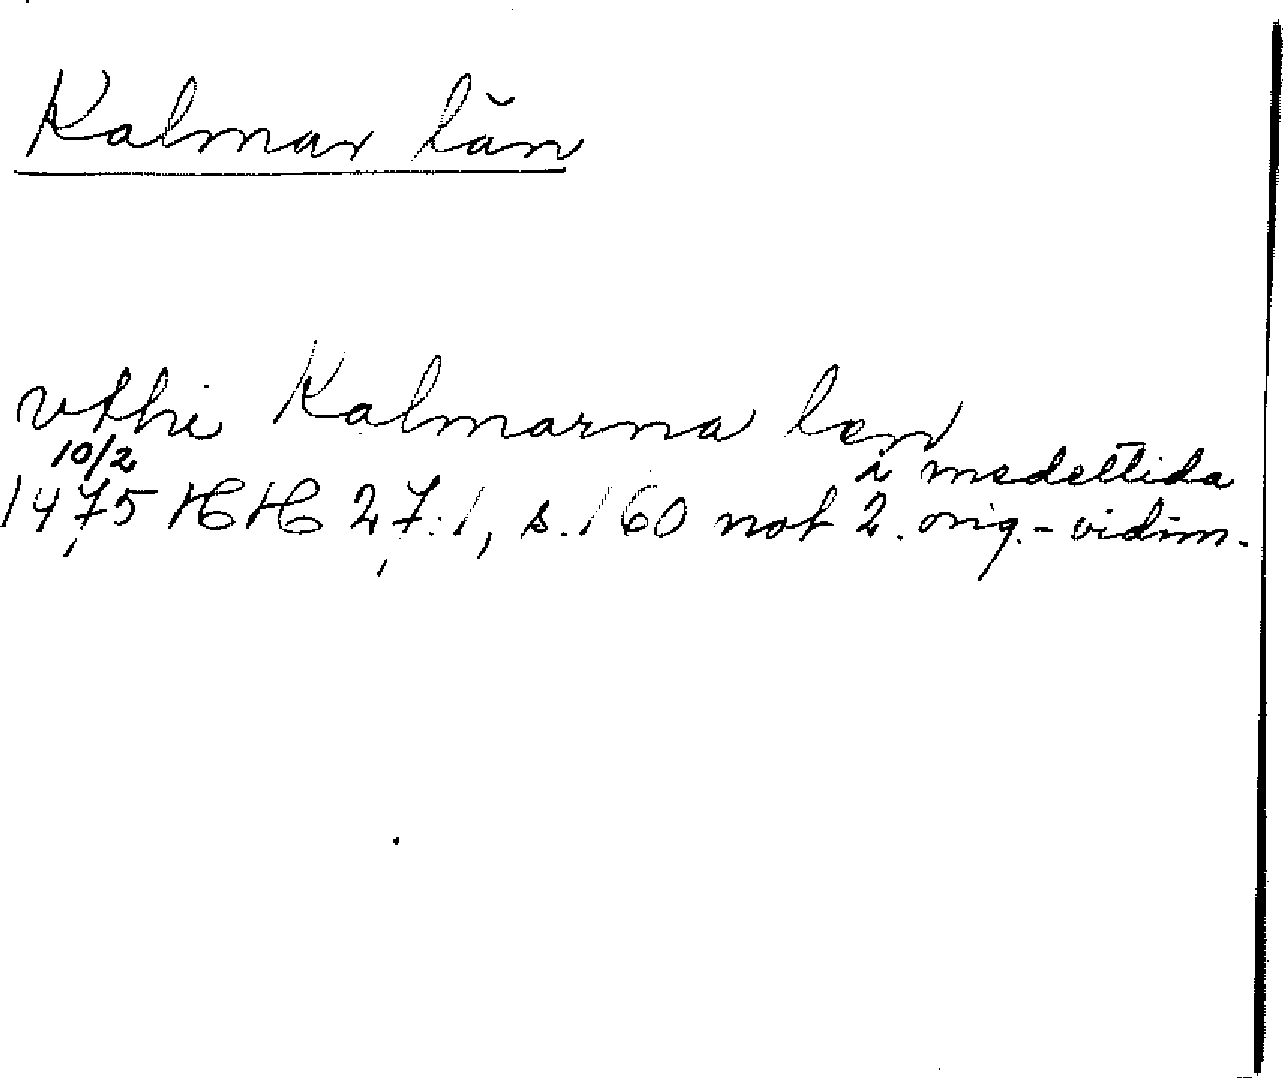 Kalmar län
vthi Kalmarna len
10/2 i medeltida
1475 HH 27:1, s. 160 not 2. orig.-vidim.